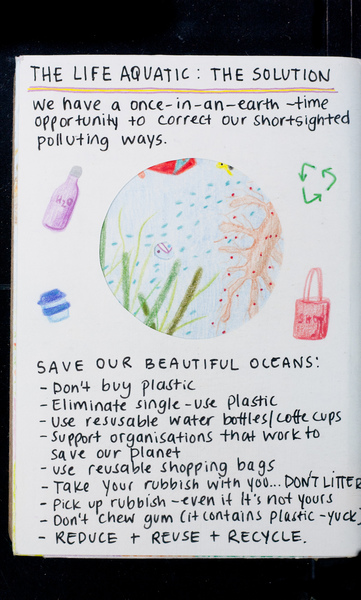 THE LIFE AQUATIC: THE SOLUTION
we have a once-in-an-earth-time
opportunity to correct our shortsighted
polluting ways.
H2O
SAVE OUR BEAUTIFUL OCEANS:
- Don't buy plastic
- Eliminate single-use plastic
- Use resusable water bottles/coffe cups
- Support organisations that work to
save our planet
- use reusable shopping bags
- Take your rubbish with you... DON'T LITTER
- Pick up rubbish - even if It's not yours
- Don't chew gum (it contains plastic - yuck)
- REDUCE + REUSE + RECYCLE.